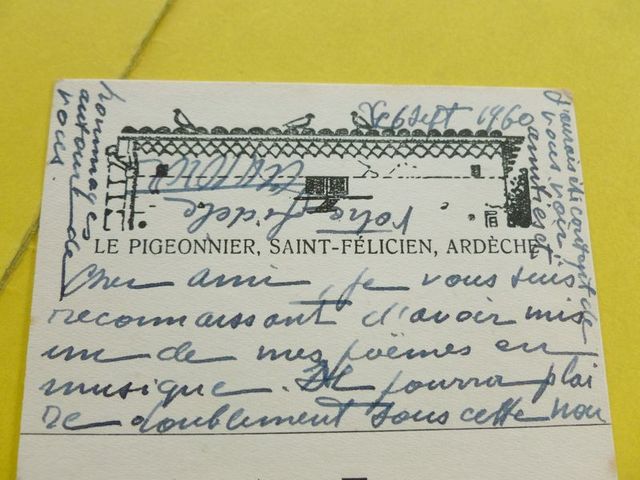 6 Sept 1960
LE PIGEONNIER, SAINT-FÉLICIEN, ARDÈCHE
Cher ami, je vous suis
reconnaissant d'avoir mis
un de mes poëmes en
musique. Il pourra plai
re doublement sous cette nou
J'aurais été content de
vous voir.
amitiés et
hommages
autour de
vous.
votre fidèle